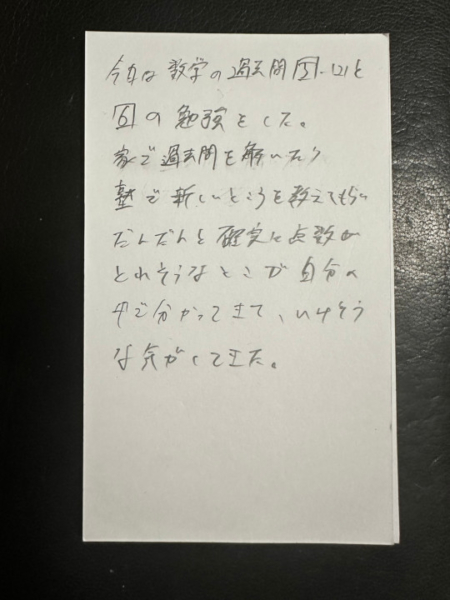 今日は数学の過去問5-(2)と
6の勉強をした。
家で過去問を解いたり
塾で新しいところを教えてもらい
だんだんと確実に点数が
とれそうなとこが自分の
中で分かってきて、いけそう
な気がしてきた。